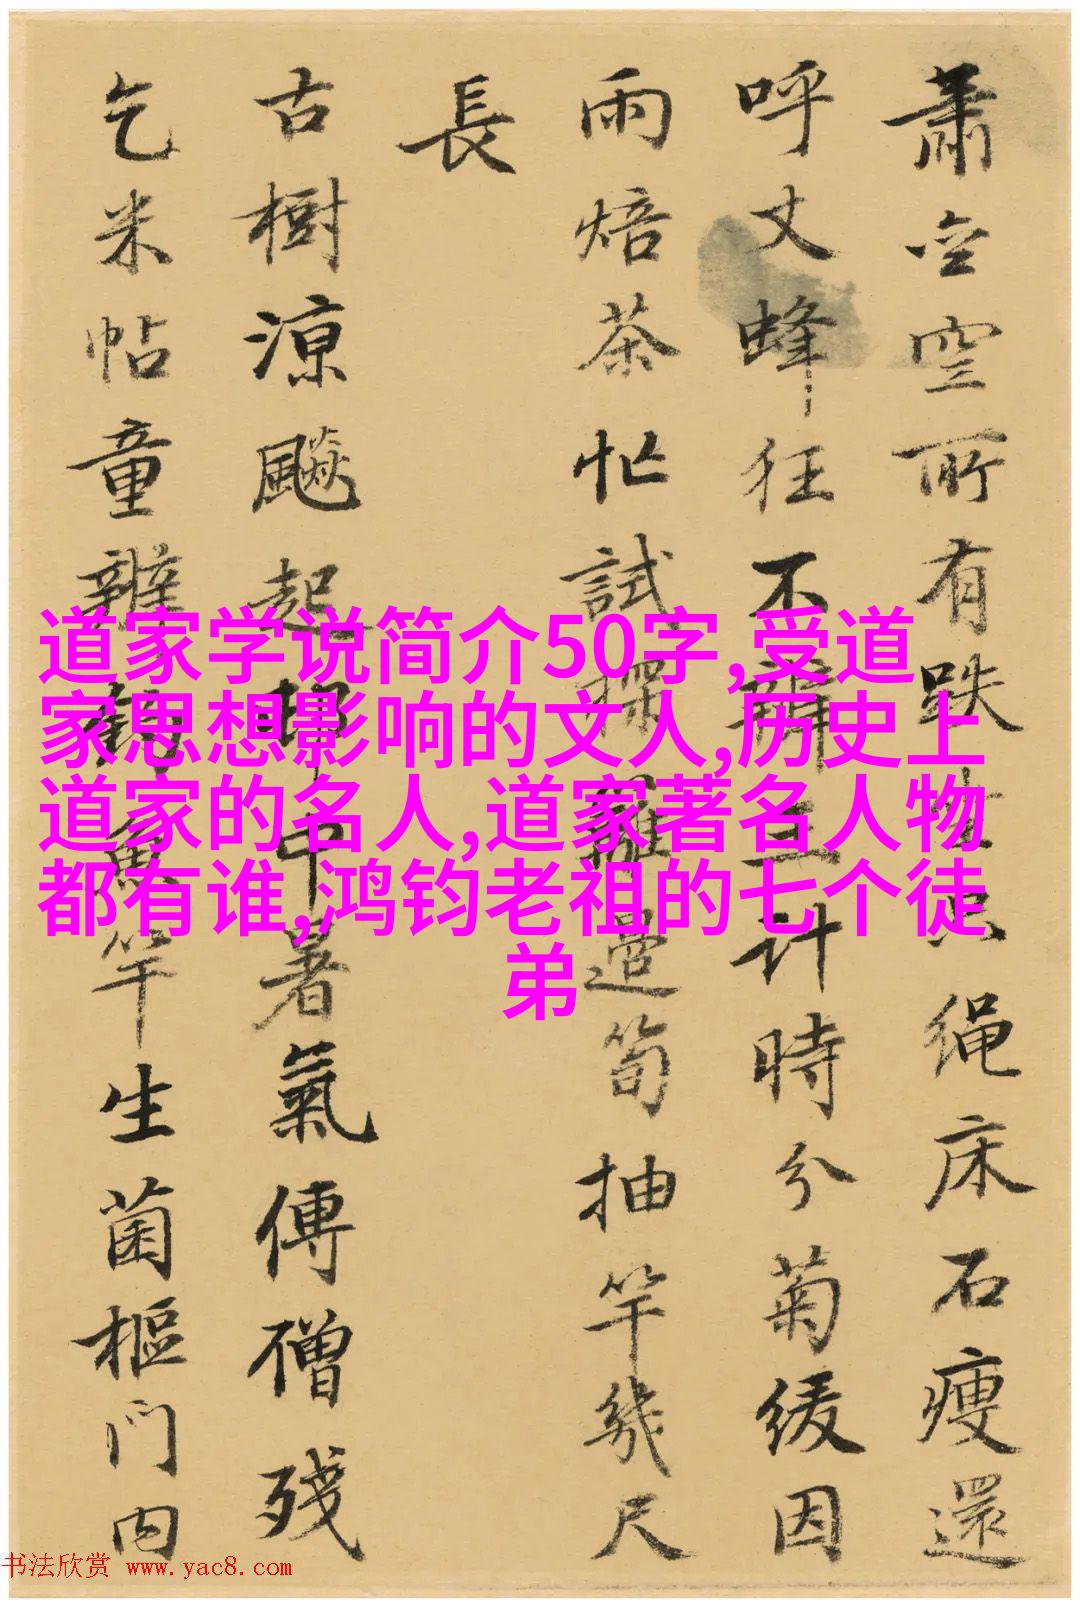 蕭空室所有跌坐只绳床石瘦還
呼丈蜂狂不辨三计時分菊缓因
雨焙茶忙試探籬邉筍抽竿幾尺
長
古樹涼飈起郎中暑氣傳僧残
乞米帖童辦魚竿生菌樞門内
道家学说简介50字,受道
家思想影响的文人,历史上
道家的名人,道家著名人物
都有谁,鸿钧老祖的七个徒
弟
书法欣赏 www.yac8.com